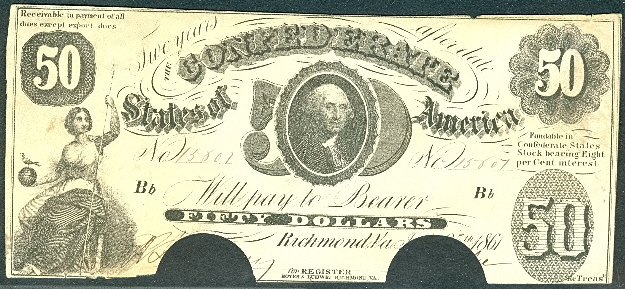 Receivable in payment of all
dues except export dues
50
Two years after date
THE
CONFEDERATE
50
States of America
50
Fundable in
Confederate States
Stock bearing Eight
per Cent interest
No 15807 No 15807
Bb Will pay to Bearer Bb
FIFTY DOLLARS
50
Richmond, Va. 1861
for REGISTER
HOYER & LUDWIG, RICHMOND, VA.
for Treasr